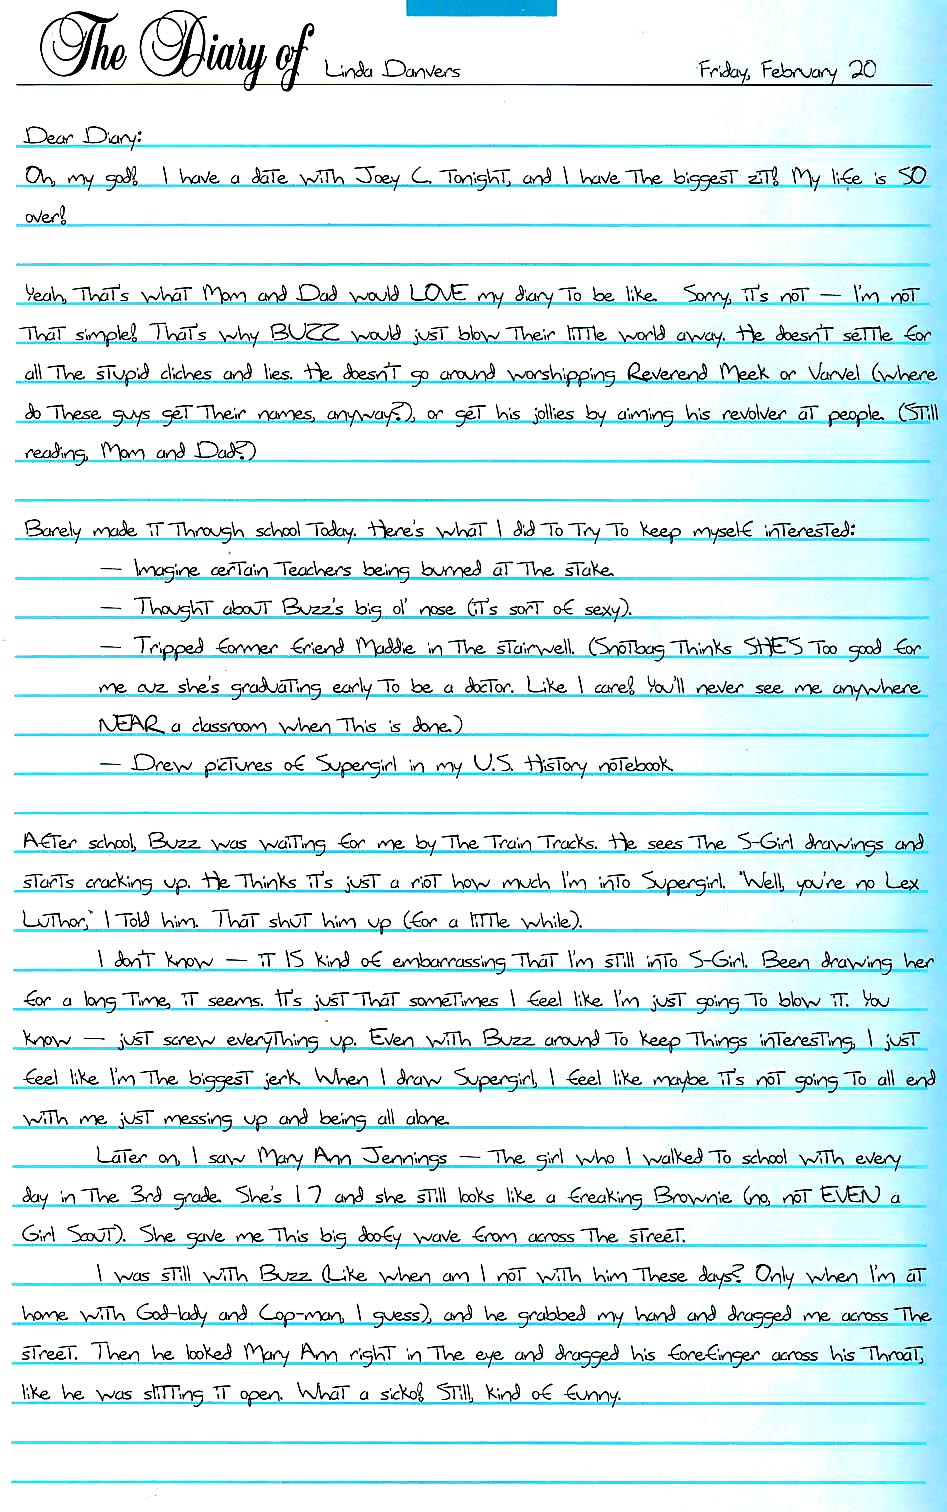 The Diary of Linda Danvers Friday, February 20
Dear Diary:
Oh, my god! I have a date with Joey C. Tonight, and I have the biggest zit! My life is SO
over!
Yeah, that's what Mom and Dad would LOVE my diary to be like. Sorry, it's not — I'm not
that simple! That's why BUZZ would just blow their little world away. He doesn't settle for
all the stupid cliches and lies. He doesn't go around worshipping Reverend Meek or Varvel (where
do these guys get their names, anyway?), or get his jollies by aiming his revolver at people. (Still
reading, Mom and Dad?)
Barely made it through school today. Here's what I did to try to keep myself interested:
— Imagine certain teachers being burned at the stake.
— Thought about Buzz's big ol' nose (it's sort of sexy).
— Tripped former friend Maddie in the stairwell. (Snotbag thinks SHE'S too good for
me cuz she's graduating early to be a doctor. Like I care! You'll never see me anywhere
NEAR a classroom when this is done.)
— Drew pictures of Supergirl in my U.S. History notebook
After school, Buzz was waiting for me by the train tracks. He sees the S-Girl drawings and
starts cracking up. He thinks it's just a riot how much I'm into Supergirl. "Well, you're no Lex
Luthor," I told him. That shut him up (for a little while).
I don't know — it IS kind of embarrassing that I'm still into S-Girl. Been drawing her
for a long time, it seems. It's just that sometimes I feel like I'm just going to blow it. You
know — just screw everything up. Even with Buzz around to keep things interesting, I just
feel like I'm the biggest jerk. When I draw Supergirl, I feel like maybe it's not going to all end
with me just messing up and being all alone.
Later on, I saw Mary Ann Jennings — the girl who I walked to school with every
day in the 3rd grade. She's 17 and she still looks like a freaking Brownie (no, not EVEN a
Girl Scout). She gave me this big doofy wave from across the street.
I was still with Buzz (Like when am I not with him these days? Only when I'm at
home with God-lady and Cop-man, I guess), and he grabbed my hand and dragged me across the
street. Then he looked Mary Ann right in the eye and dragged his forefinger across his throat,
like he was slitting it open. What a sicko! Still, kind of funny.